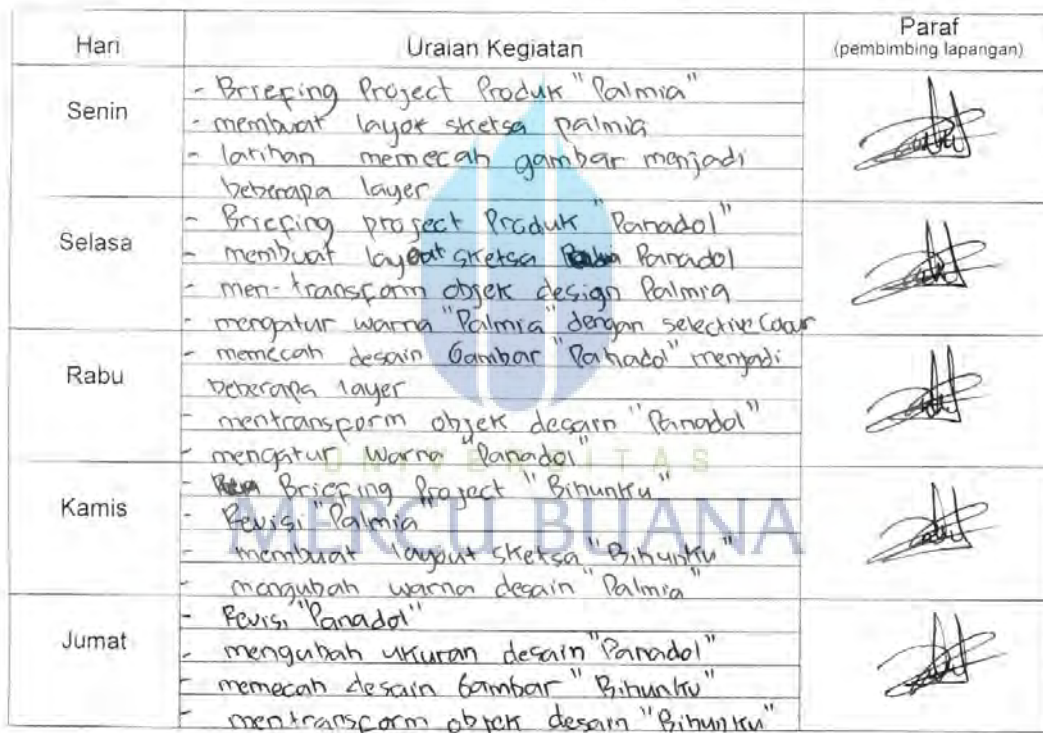 Hari Uraian Kegiatan Paraf
(pembimbing lapangan)
Senin
- Briefing Project Produk "Palmia"
- membuat layot sketsa palmia
- latihan memecah gambar menjadi
beberapa layer
Selasa
- Briefing project Produk "Panadol"
- membuat layout sketsa Panadol
- men-transform objek design Palmia
- mengatur warna "Palmia" dengan selective Colour
Rabu
- memecah desain Gambar "Panadol" menjadi
beberapa layer
- mentransform objek desain "Panadol"
- mengatur warna "Panadol"
Kamis
- Briefing Project "Bihunku"
- Revisi "Palmia"
- membuat layout sketsa "Bihunku"
- mengubah warna desain "Palmia"
Jumat
- Revisi "Panadol"
- mengubah ukuran desain "Panadol"
- memecah desain Gambar "Bihunku"
- mentransform objek desain "Bihunku"
UNIVERSITAS
MERCU BUANA